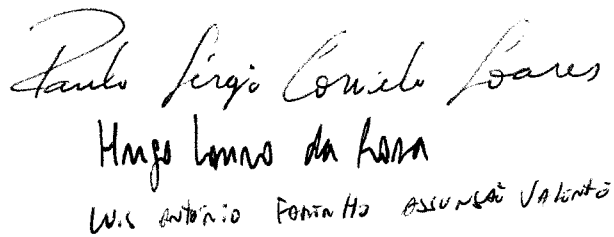 Paulo Sérgio Corvelo Soares
Hugo Louro da Rosa
Luis António Farinho Assunsaõ Valente